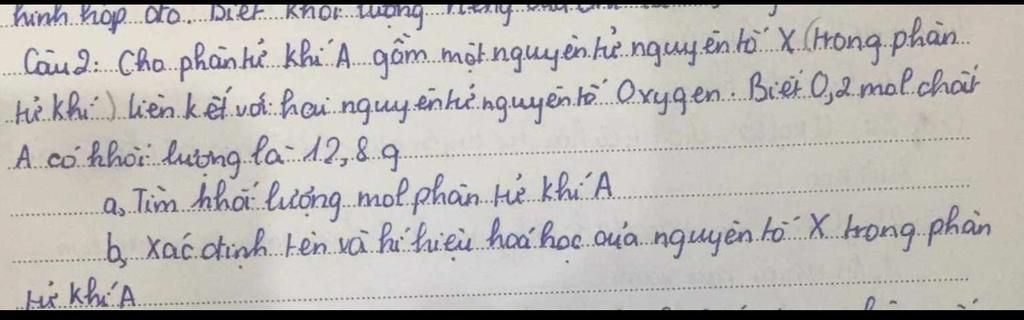 hình hộp đó. Biết khối lượng riêng
Câu 2: Cho phân tử khí A gồm một nguyên tử nguyên tố X (trong phân
tử khí) liên kết với hai nguyên tử nguyên tố Oxygen. Biết 0,2 mol chất
A có khối lượng là 12,8 g
a, Tìm khối lượng mol phân tử khí A
b, Xác định tên và kí hiệu hoá học của nguyên tố X trong phân
tử khí A